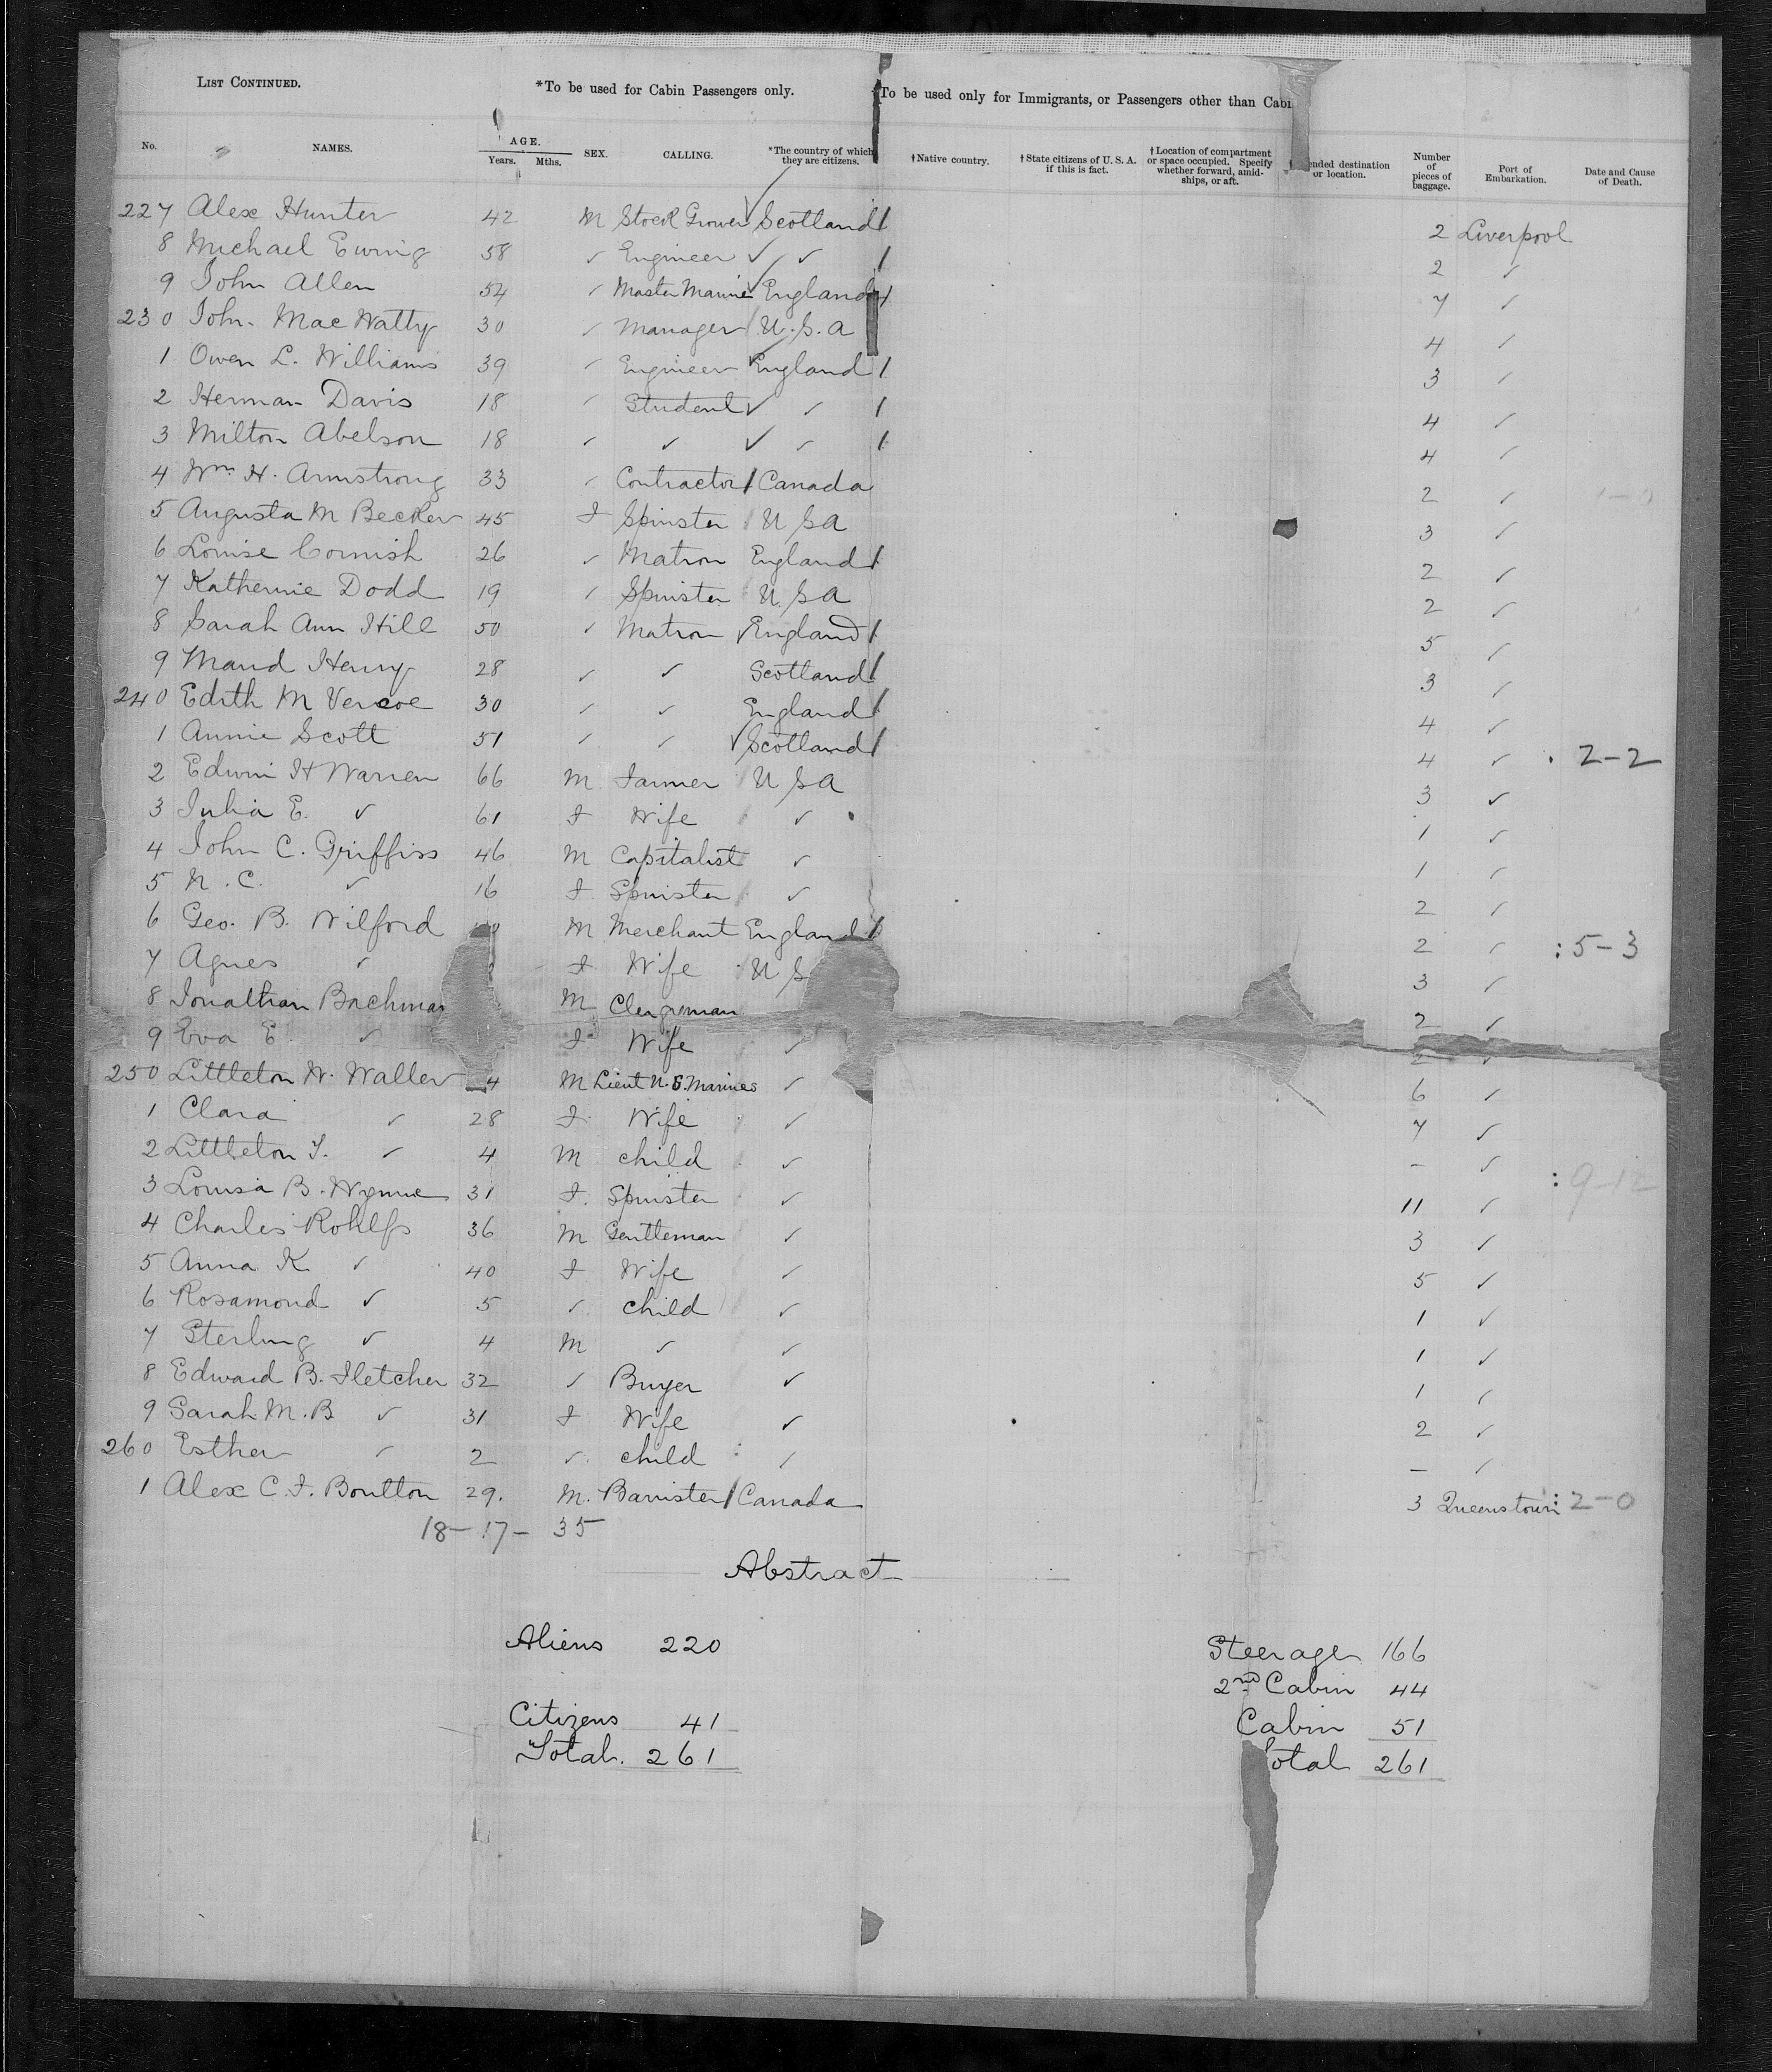 LIST CONTINUED. *To be used for Cabin Passengers only. To be used only for Immigrants, or Passengers other than Cabi
No. NAMES. AGE. Years. Mths. SEX. CALLING. *The country of which they are citizens. †Native country. †State citizens of U. S. A. if this is fact. †Location of compartment or space occupied. Specify whether forward, amidships, or aft. ended destination or location. Number of pieces of baggage. Port of Embarkation. Date and Cause of Death.
227 Alex Hunter 42 M Stock Grower Scotland 2 Liverpool
8 Michael Ewing 58 ✓ Engineer ✓ ✓ 2 ✓
9 John Allen 54 ✓ Master Marine England 7 ✓
230 John Mac Watty 30 ✓ Manager U.S.A 4 ✓
1 Owen L. Williams 39 ✓ Engineer England 3 ✓
2 Herman Davis 18 ✓ Student ✓ ✓ 4 ✓
3 Milton Abelson 18 ✓ ✓ ✓ ✓ 4 ✓
4 Wm. H. Armstrong 33 ✓ Contractor Canada 2 ✓
5 Augusta M Becker 45 F Spinster U S A 3 ✓
6 Louise Cornish 26 ✓ Matron England 2 ✓
7 Katherine Dodd 19 ✓ Spinster U. S A 2 ✓
8 Sarah Ann Hill 50 ✓ Matron England 5 ✓
9 Maud Henry 28 ✓ ✓ Scotland 3 ✓
240 Edith M Vercoe 30 ✓ ✓ England 4 ✓
1 Annie Scott 51 ✓ ✓ Scotland 4 ✓ 2-2
2 Edwin H Warren 66 M Farmer U S A 3 ✓
3 Julia E. ✓ 61 F Wife ✓ 1 ✓
4 John C. Griffiss 46 M Capitalist ✓ 1 ✓
5 N. C. ✓ 16 F Spinster ✓ 2 ✓
6 Geo. B. Wilford M Merchant England 2 ✓ : 5-3
7 Agnes ✓ F Wife U S 3 ✓
8 Jonathan Bachman M Clergyman 2 ✓
9 Eva E. ✓ F Wife ✓ 2 ✓
250 Littleton W. Waller 4 M Lieut U.S. Marines ✓ 6 ✓
1 Clara ✓ 28 F. Wife ✓ 7 ✓
2 Littleton T. ✓ 4 M child ✓ – ✓
3 Louisa B. Wynne 31 F. Spinster ✓ 11 ✓ : 9-12
4 Charles Rohlfs 36 M Gentleman ✓ 3 ✓
5 Anna K. ✓ 40 F Wife ✓ 5 ✓
6 Rosamond ✓ 5 ✓ child ✓ 1 ✓
7 Sterling ✓ 4 M ✓ ✓ 1 ✓
8 Edward B. Fletcher 32 ✓ Buyer ✓ 1 ✓
9 Sarah M. B ✓ 31 F Wife ✓ 2 ✓
260 Esther ✓ 2 ✓ child ✓ – ✓
1 Alex C. F. Boulton 29. M. Barrister Canada 3 Queenstown : 2-0
18 – 17 – 35
Abstract
Aliens 220 Steerage 166
2nd Cabin 44
Citizens 41 Cabin 51
Total. 261 otal 261